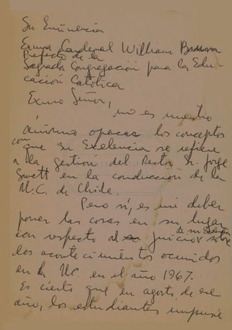 Su Eminencia
Exmo Cardenal William Baum
Prefecto de la
Sagrada Congregación para la Edu-
cación Católica
Exmo Señor,
no es nuestro
ánimo opacar los conceptos
con que Su Excelencia se refiere
a la gestión del Rector Sr. Jorge
Swett en la conducción de la
U.C. de Chile.
Pero sí, es mi deber
poner las cosas en su lugar
con respecto al juicio sobre
los acontecimientos ocurridos
en la UC en el año 1967.
Es cierto que en agosto de ese
año, los estudiantes